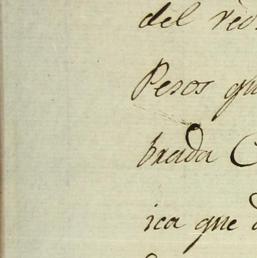 del
Pesos qu
brada C
ica que